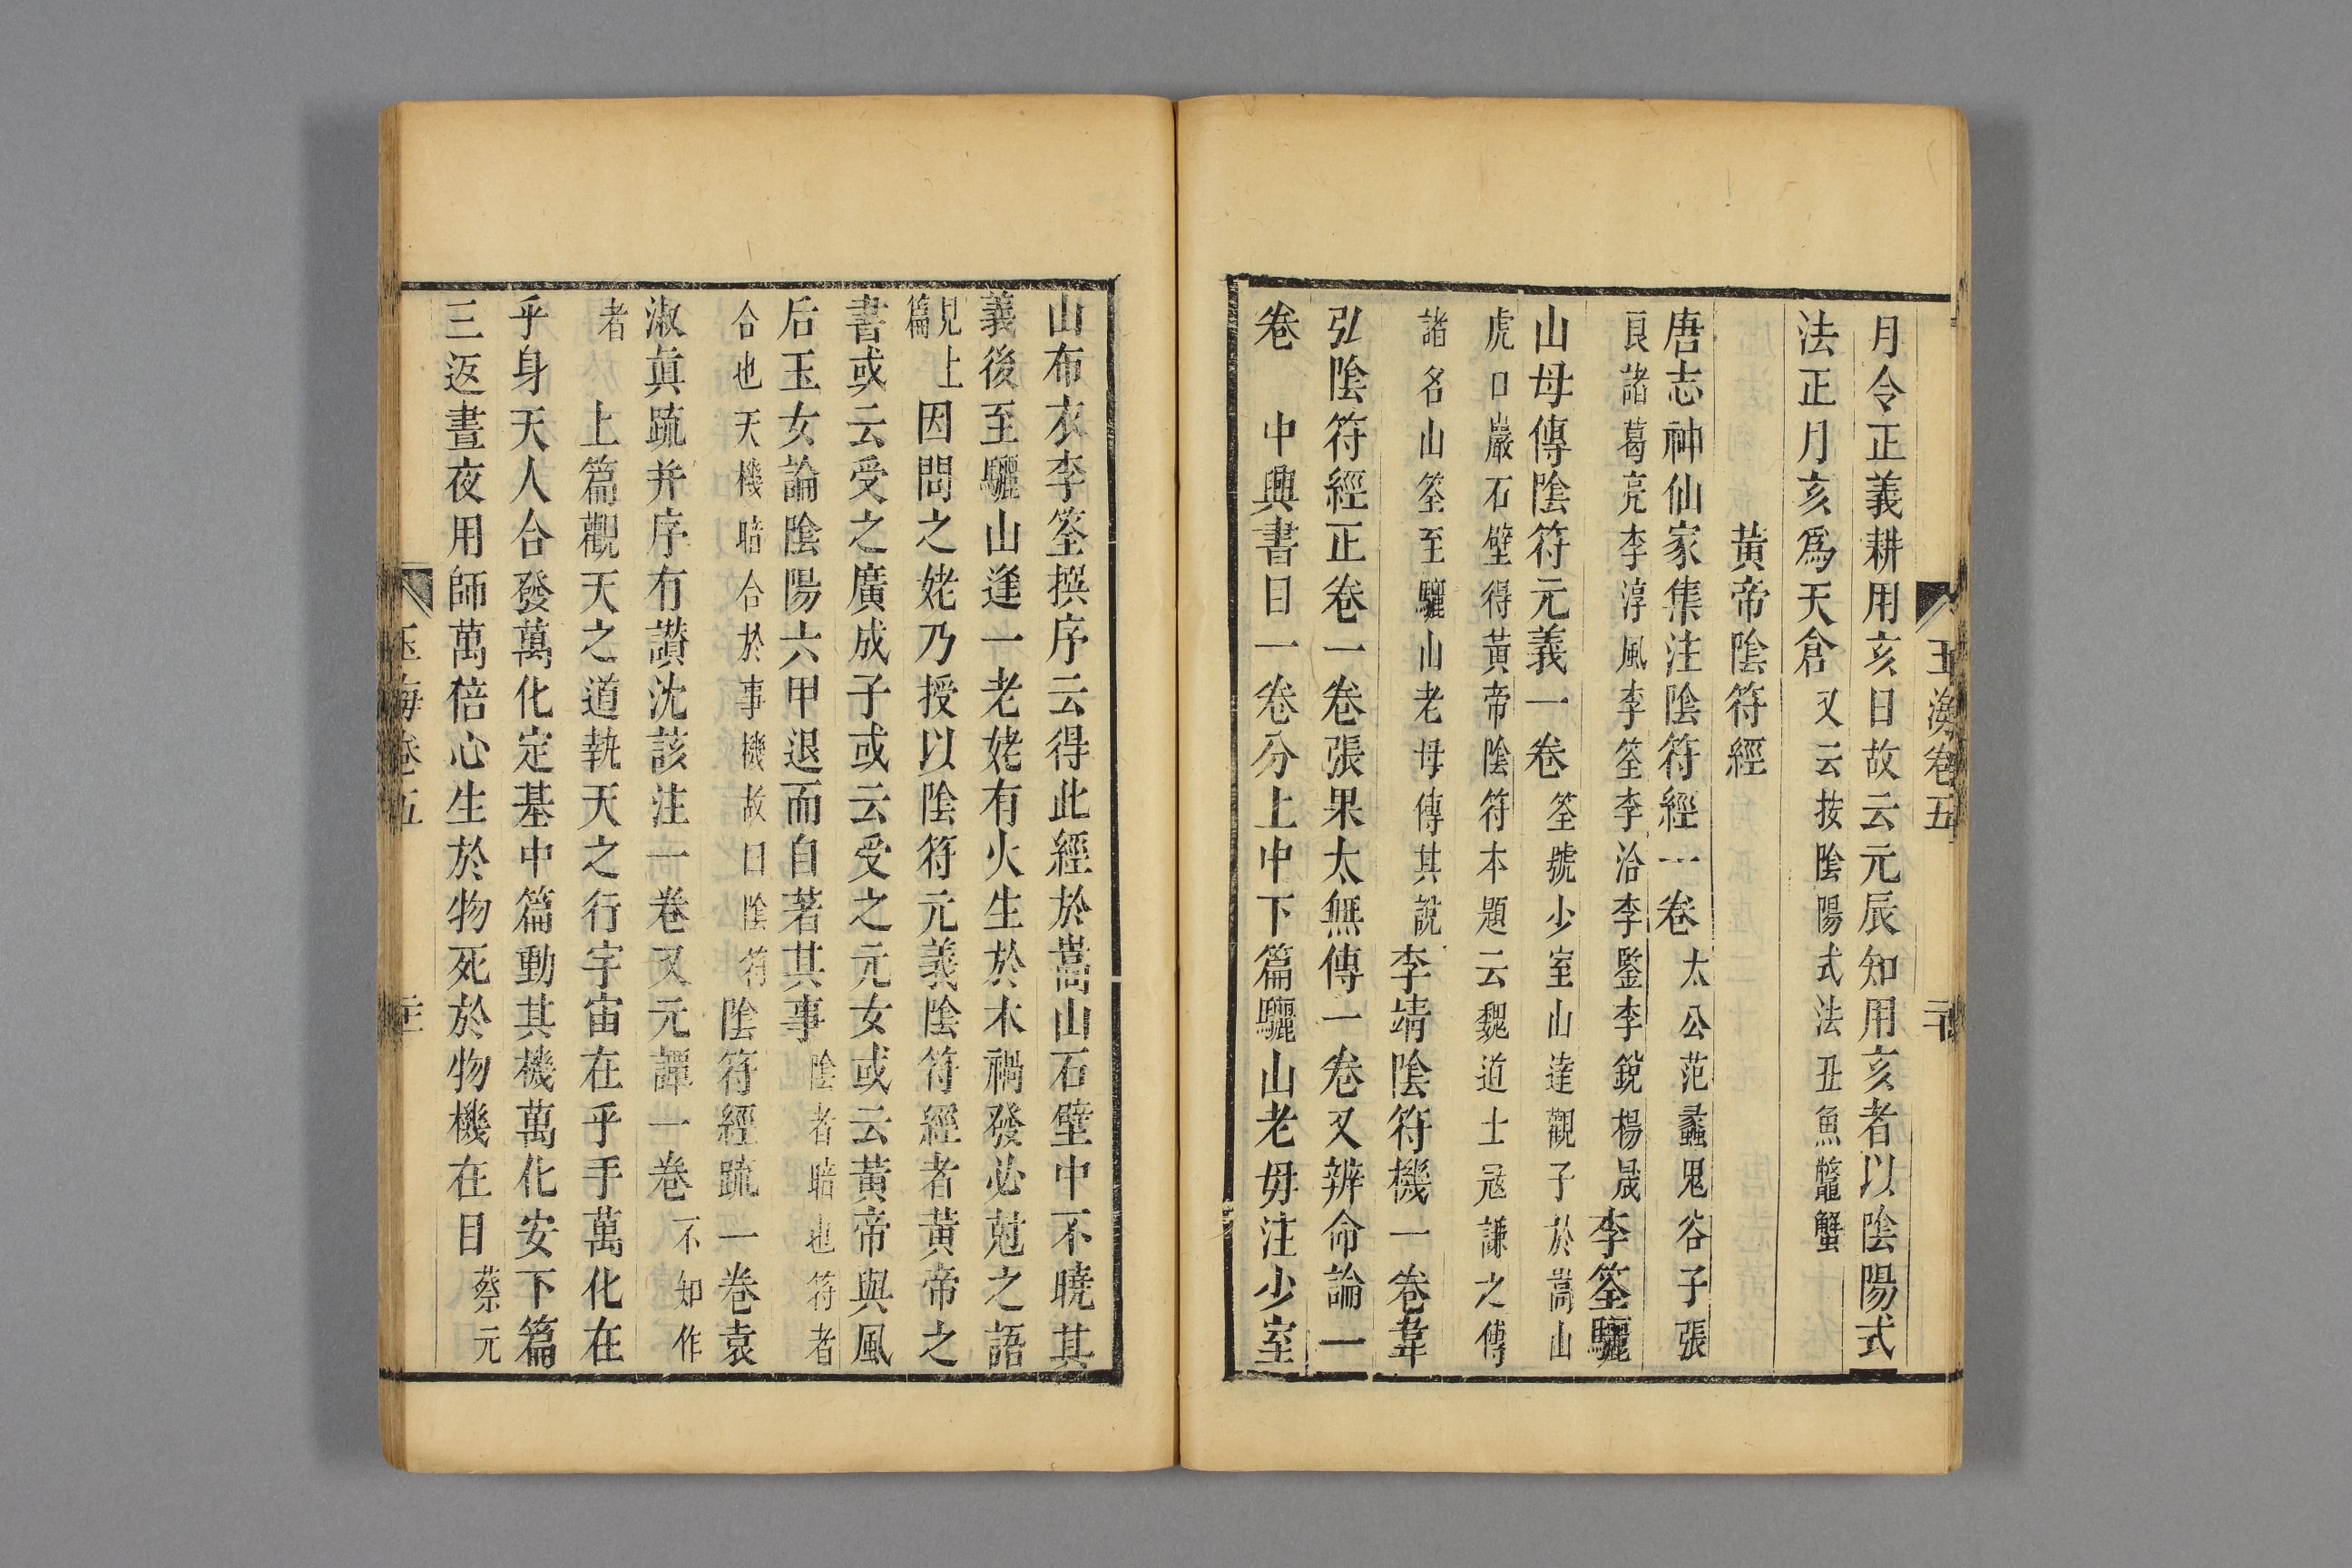 玉海卷五
月令正義耕用亥日故云元辰知用亥者以陰陽式
法正月亥爲天倉又云按陰陽式法丑魚鼈蟹
黃帝陰符經
唐志神仙家集注陰符經一卷太公范蠡鬼谷子張
良諸葛亮李淳風李筌李洽李鑒李銳楊晟李筌驪
山母傳陰符元義一卷筌號少室山達觀子於嵩山
虎口巖石壁得黃帝陰符本題云魏道士冦謙之傳
諸名山筌至驪山老母傳其說李靖陰符機一卷韋
弘陰符經正卷一卷張果太無傳一卷又辨命論一
卷 中興書目一卷分上中下篇驪山老毋注少室
山布衣李筌撰序云得此經於嵩山石壁中不曉其
義後至驪山逢一老姥有火生於木禍發必尅之語
見上篇因問之姥乃授以陰符元義陰符經者黃帝之
書或云受之廣成子或云受之元女或云黃帝與風
后玉女論陰陽六甲退而自著其事陰者暗也符者
合也天機暗合於事機故曰陰符陰符經疏一卷袁
淑眞疏并序有讚沈該注一卷又元譚一卷不知作
者 上篇觀天之道執天之行宇宙在乎手萬化在
乎身天人合發萬化定基中篇動其機萬化安下篇
三返晝夜用師萬倍心生於物死於物機在目蔡元
玉海卷五